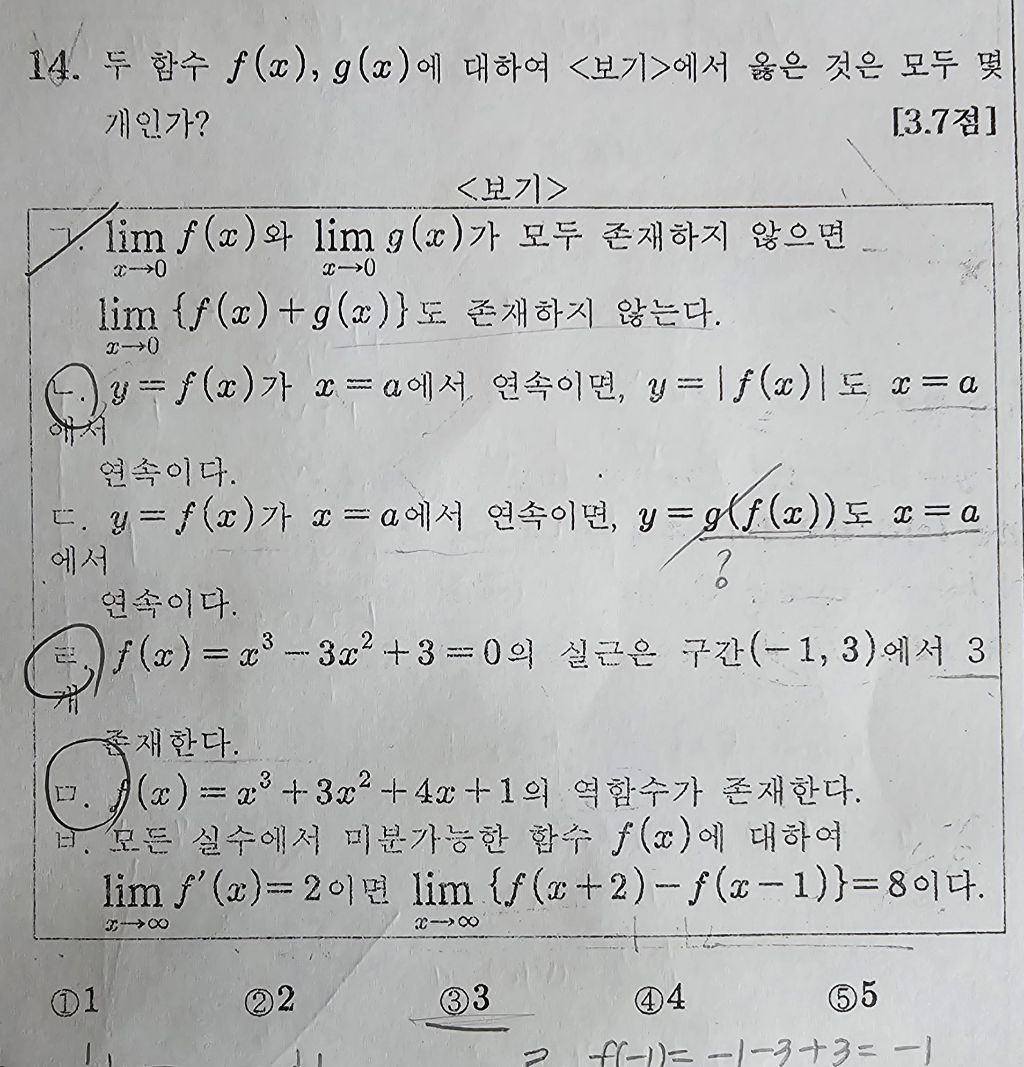 14. 두 함수 f(x), g(x)에 대하여 <보기>에서 옳은 것은 모두 몇
개인가? [3.7점]
<보기>
ㄱ. lim f(x)와 lim g(x)가 모두 존재하지 않으면
x→0 x→0
lim {f(x)+g(x)}도 존재하지 않는다.
x→0
ㄴ. y=f(x)가 x=a에서 연속이면, y=|f(x)|도 x=a
에서
연속이다.
ㄷ. y=f(x)가 x=a에서 연속이면, y=g(f(x))도 x=a
?
에서
연속이다.
ㄹ. f(x)=x³-3x²+3=0의 실근은 구간(-1, 3)에서 3
개
존재한다.
ㅁ. f(x)=x³+3x²+4x+1의 역함수가 존재한다.
ㅂ. 모든 실수에서 미분가능한 함수 f(x)에 대하여
lim f′(x)=2이면 lim {f(x+2)-f(x-1)}=8이다.
x→∞ x→∞
①1 ②2 ③3 ④4 ⑤5
f(-1)= -1-3+3= -1